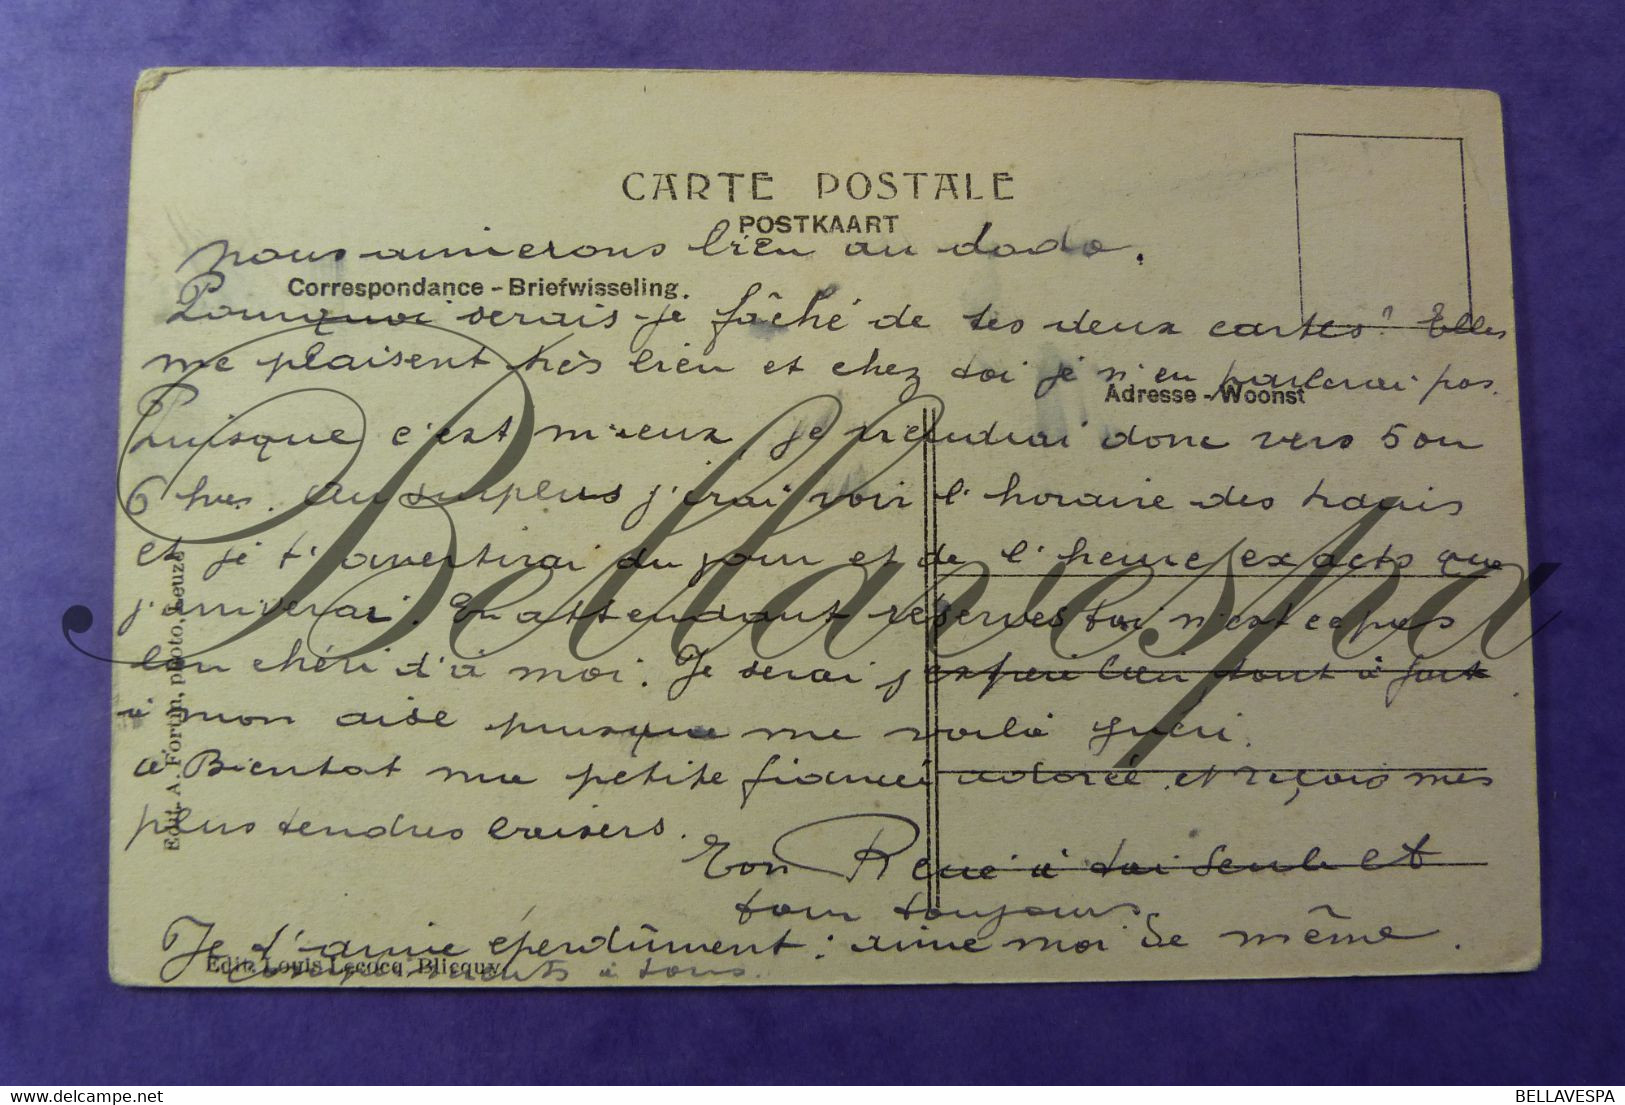 CARTE POSTALE
POSTKAART
nous aimerons bien au dodo.
Correspondance - Briefwisseling.
Pourquoi serais-je fâché de tes deux cartes? Elles
me plaisent très bien et chez toi je n'en parlerai pas.
Adresse - Woonst
Puisque c'est mieux, je viendrai donc vers 5 ou
6 hrs. Au surplus j'irai voir l'horaire des trains
et je t'avertirai du jour et de l'heure exacts que
j'arriverai. En attendant réserves toi n'est ce pas
bien chéri t'à moi. Je serai j'espère bien tout à fait
à mon aise puisque me voilà guéri.
à Bientot ma petite fiancée adorée et reçois mes
plus tendres baisers.
Ton René à toi seule et
pour toujours
Je t'aime éperdûment: aime moi de même.
à tous.
Edit. Louis Lecocq, Blicquy.
Edit. A. Fortin, photo, Leuze
Bellavespa
BELLAVESPA